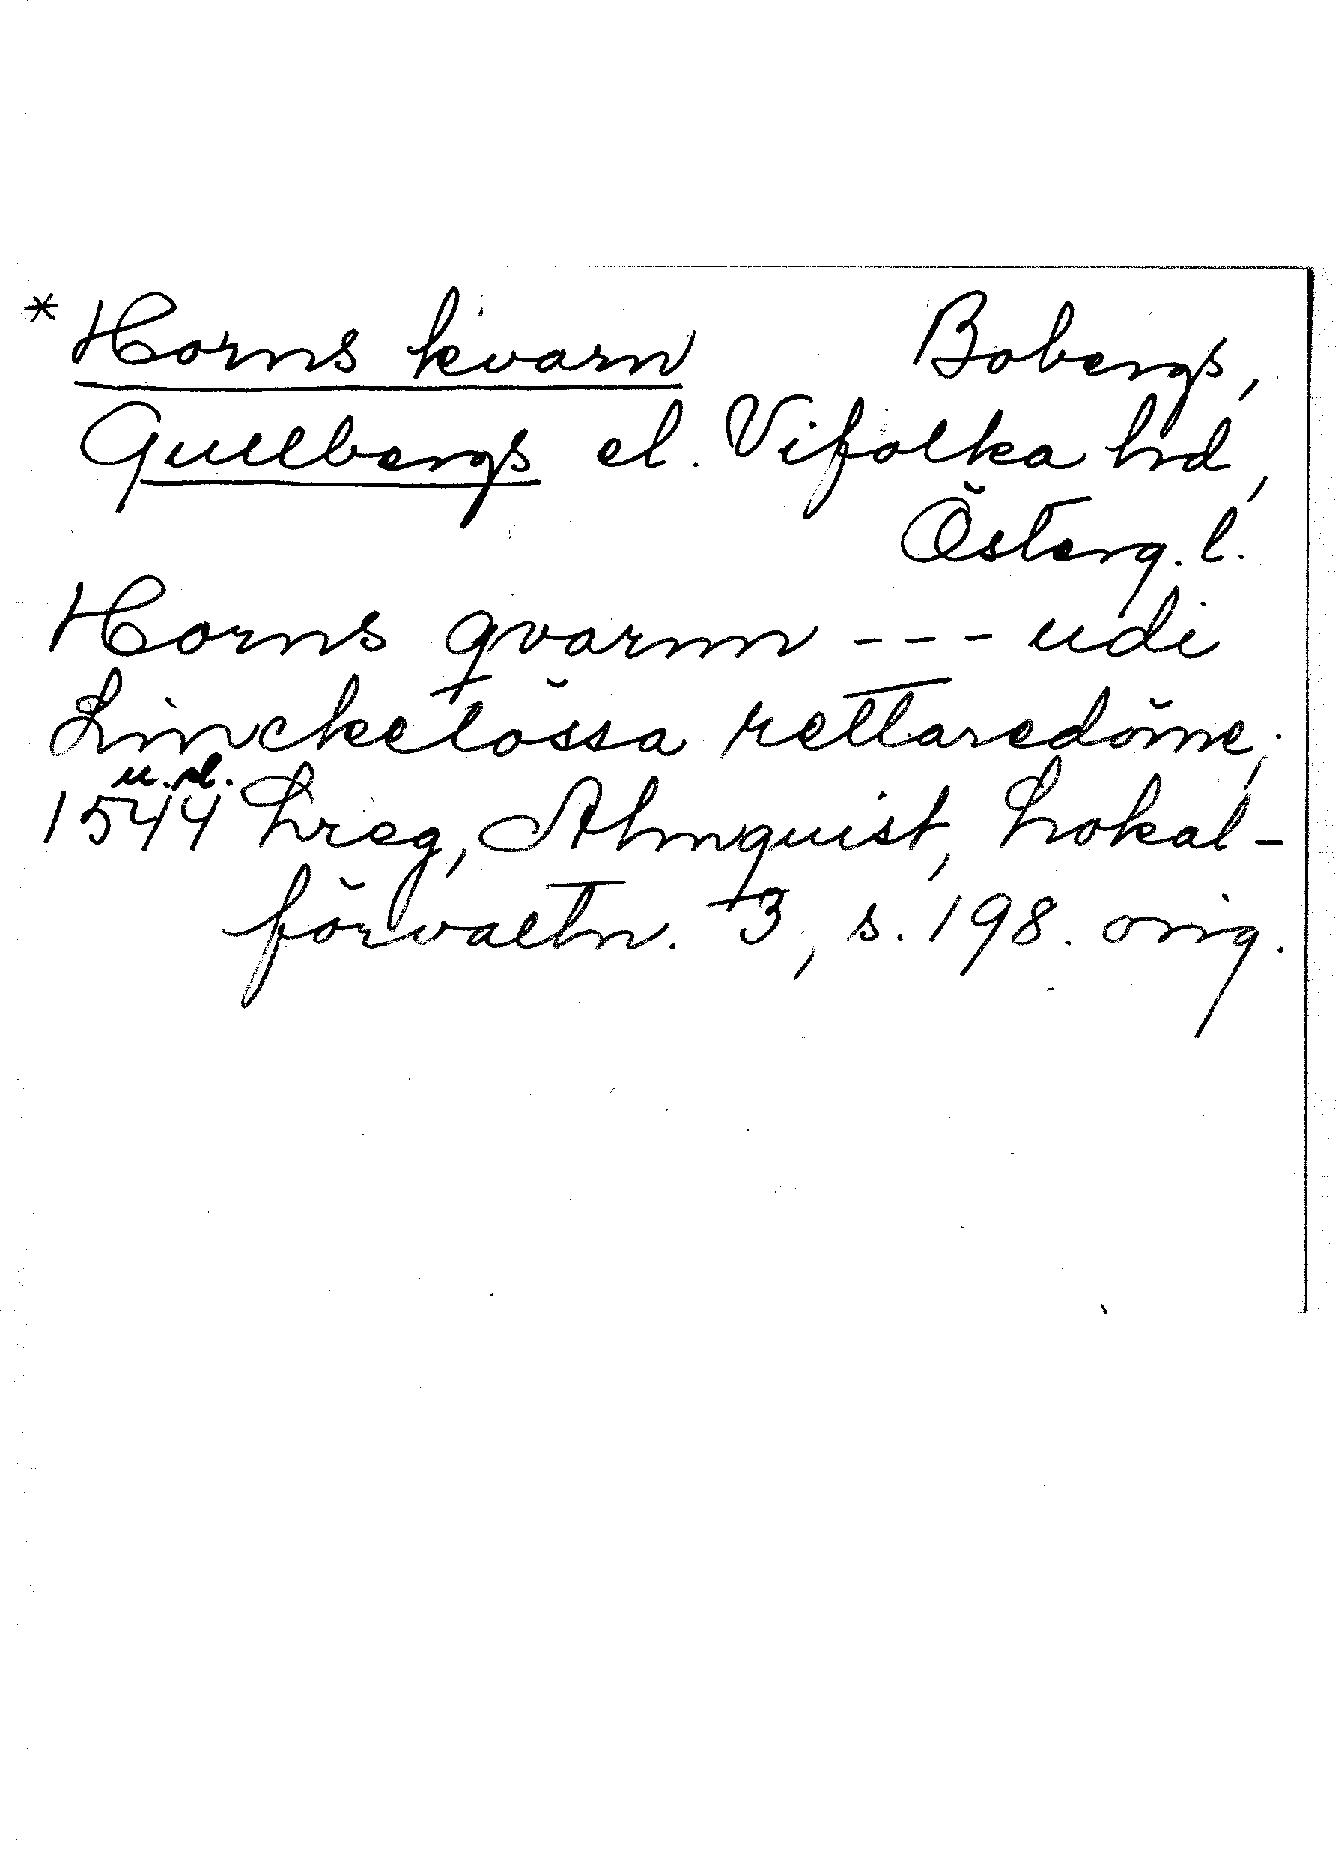 * Horns kvarn Bobergs,
Gullbergs el. Vifolka hrd,
Österg. l.
Horns qvarnn --- udi
Linckelössa rettaredöme;
u. sl.
1544 Lreg, Almquist, Lokal-
förvaltn. 3, s. 198. orig.